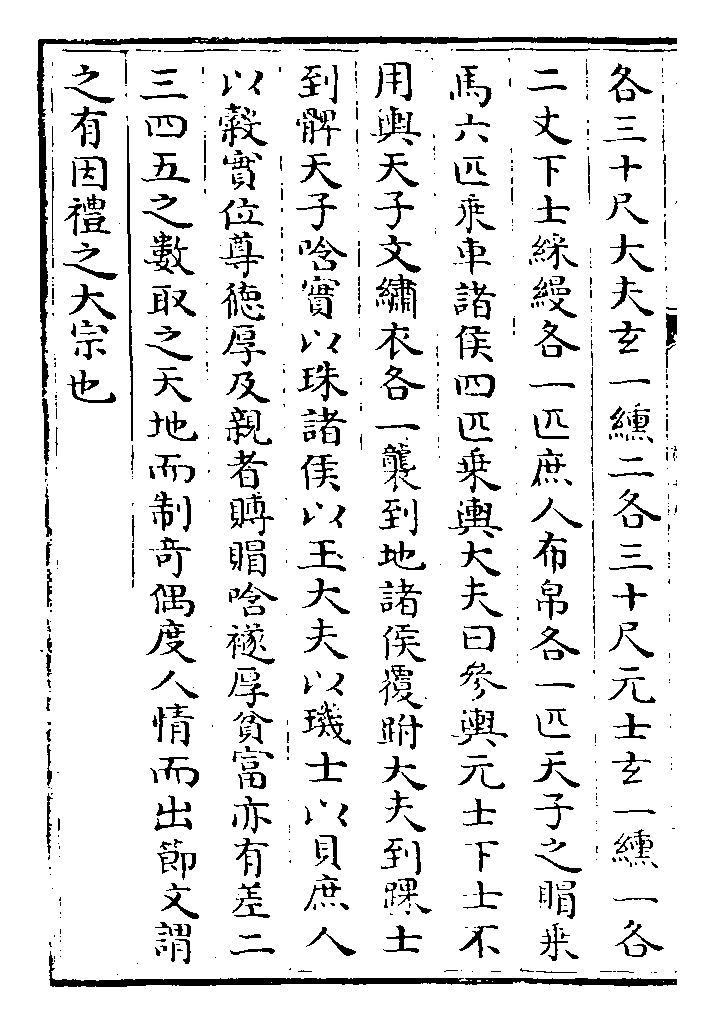 各三十尺大夫玄一纁二各三十尺元士玄一纁一各
二丈下士綵縵各一匹庶人布帛各一匹天子之賵乘
馬六匹乘車諸侯四匹乘輿大夫曰參輿元士下士不
用輿天子文繡衣各一襲到地諸侯覆跗大夫到踝士
到髀天子唅實以珠諸侯以玉大夫以璣士以貝庶人
以糓實位尊德厚及親者賻賵唅襚厚貧富亦有差二
三四五之數取之天地而制竒偶度人情而出節文謂
之有因禮之大宗也